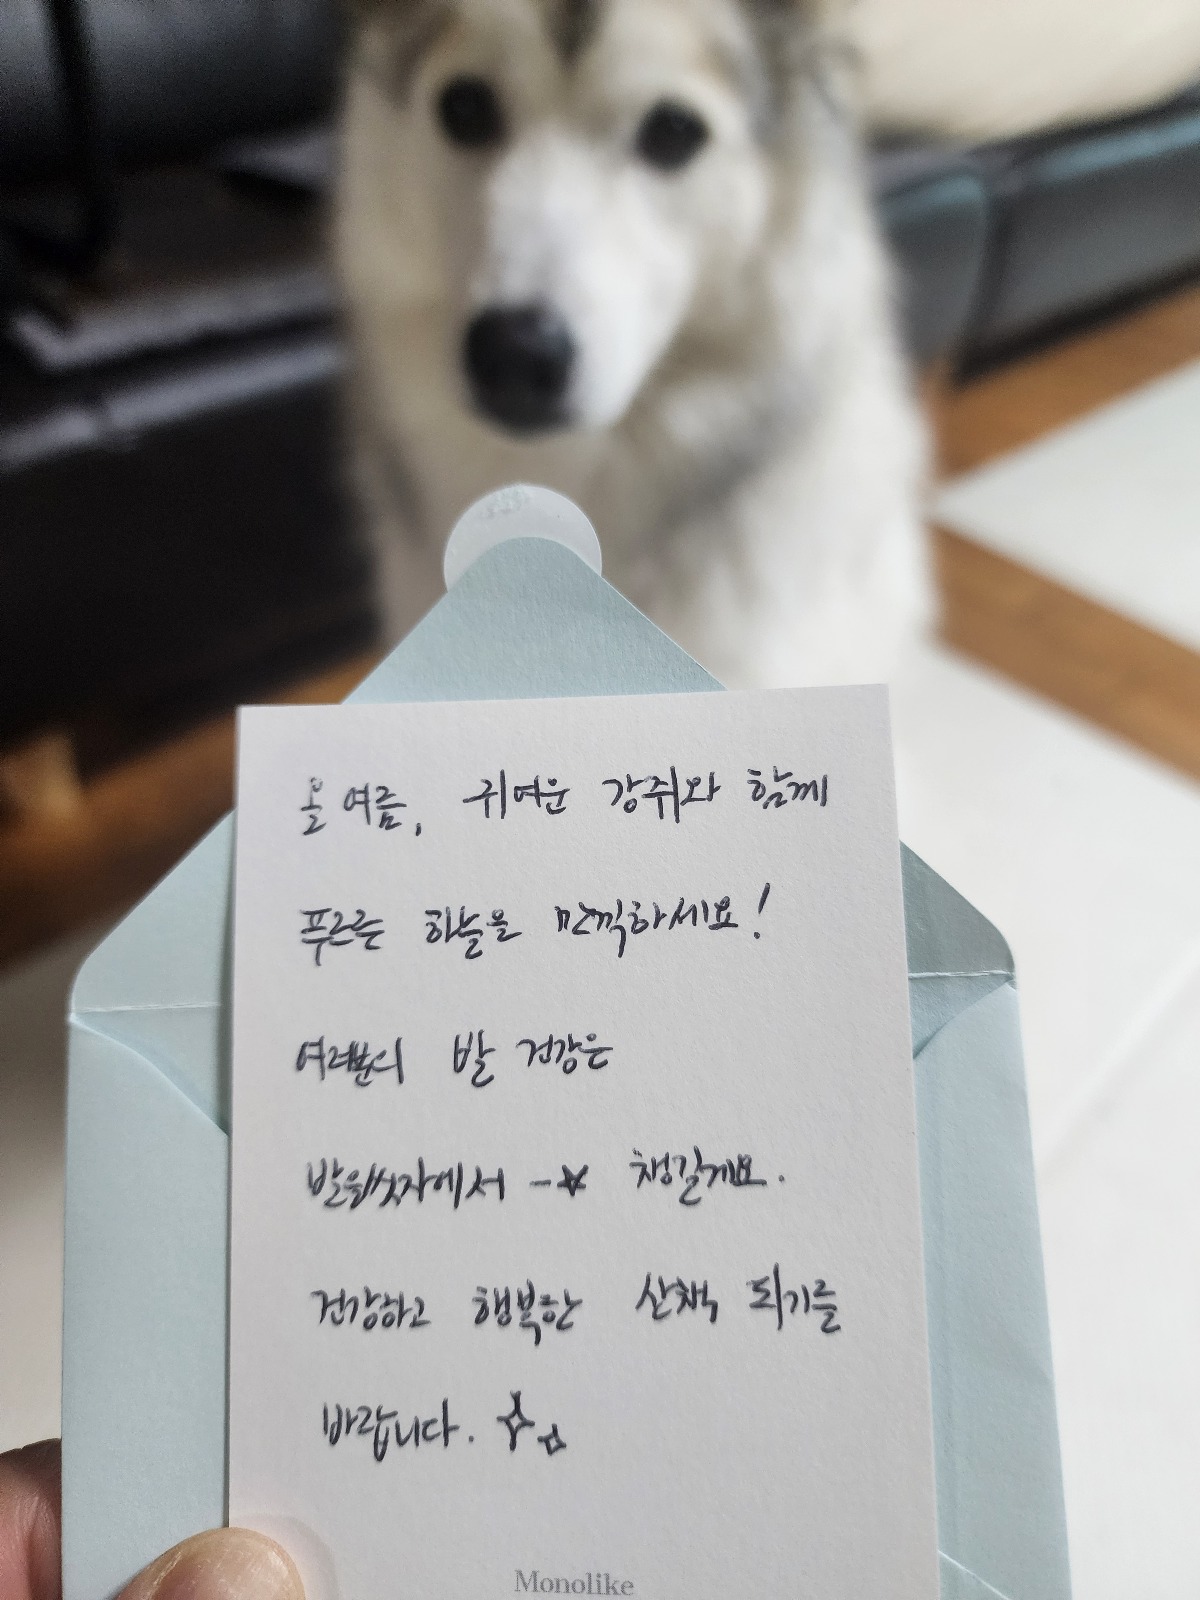 올 여름, 귀여운 강쥐와 함께
푸르른 하늘을 만끽하세요!
여러분의 발 건강은
발을씻자에서 -★ 챙길게요.
건강하고 행복한 산책 되기를
바랍니다.
Monolike